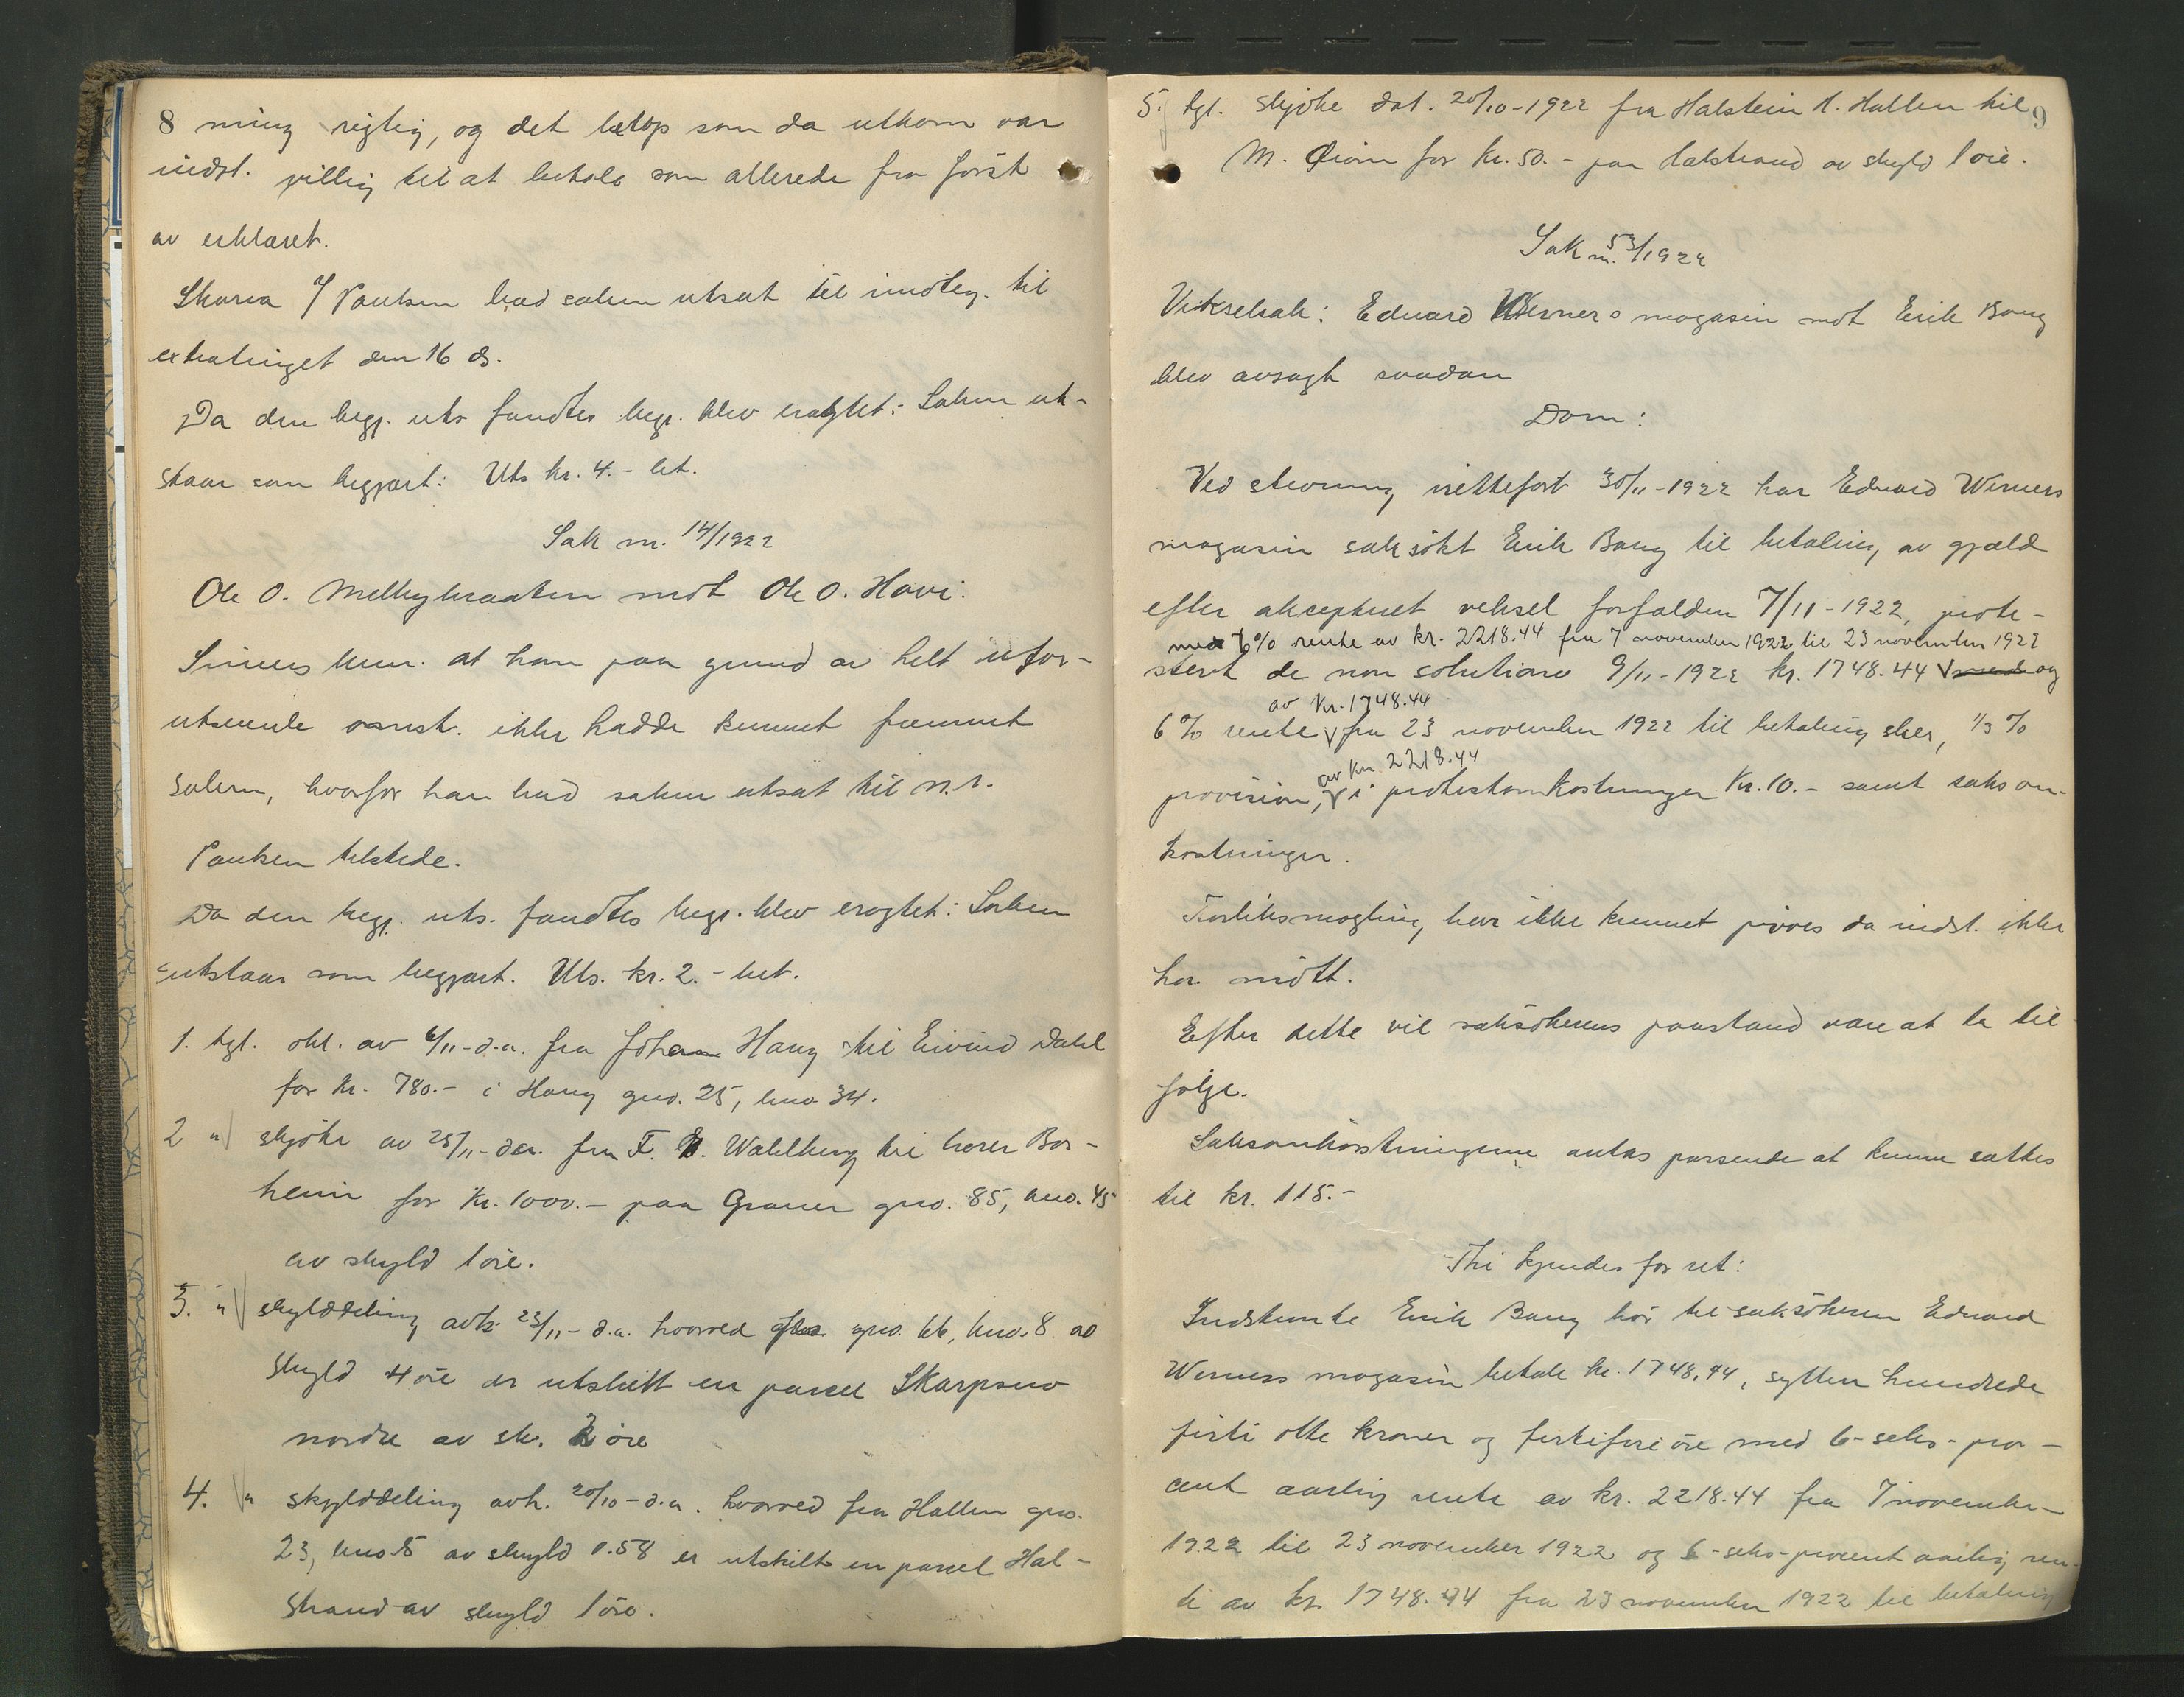 8 ning rigtig, og det beløp som da utkom var
indst. villig til at betale som allerede fra først
av erklæret.
Skarea % Paulsen bad saken utsat til indlæg. til
extratinget den 16 ds.
Da den begj. uts fandtes begr. blev eragtet: Saken ut-
staar som begjært: Uts kr. 4.- bet.
Sak nr. 14/1922
Ole O. Melbybraaten mot Ole O. Hovi:
Smiees bem. at han paa grund av helt ufor-
utseende omst. ikke hadde kunnet fremmet
saken, hvorfor han bad saken utsat til n.t.
Paulsen tilstede.
Da den begj. uts. fandtes begr. blev eragtet: Saken
utstaar som begjært. Uts. kr. 2.- bet.
1. tgl. obl. av 6/11-d.a. fra Johan Haug til Eivind Dahl
for kr. 780.- i Haug gno. 25, bno 34.
2 " skjøte av 25/11-d.a. fra F. B. Wahlberg til Borheim for kr. 1000.- paa Graner gno. 85, bno. 45
av skyld 1 øre.
3. " skylddeling avh. 23/11-d.a. hvorved fra gno. 66, bno. 8 av
skyld 4 øre er utskilt en parcel Skarpsno
nordre av sk. 2 øre
4. " skylddeling avh. 20/10-d.a. hvorved fra Hallen gno.
23, bno 5 av skyld 0.58 er utskilt en parcel Hal-
strand av skyld 1 øre.
5. tgl. skjøte dat. 20/10-1922 fra Halstein H. Hallen til 9
M. Øien for kr. 50.- paa Halstrand av skyld 1 øre.
Sak nr. 53/1922
Vekselsak: Edvard Werners magasin mot Erik Bang
blev avsagt saadan
Dom:
Ved stevning irettefort 30/11-1922 har Edvard Werners
magasin saksøkt Erik Bang til betaling av gjæld
efter akceptert veksel forfalden 7/11-1922, prote-
med 6% rente av kr. 2218.44 fra 7 november 1922 til 23 november 1922
stert de non solutione 9/11-1922 kr. 1748.44 V med og
av kr. 1748.44
6% rente V fra 23 november 1922 til betaling sker, 1/3 %
av kr. 2218.44
provision, V i protestomkostninger kr. 10.- samt saksom-
kostninger.
Forliksmægling har ikke kunnet prøves da indst. ikke
har møtt.
Efter dette vil saksøkerens paastand være at ta til
følge.
Saksomkostningerne antas passende at kunne sættes
til kr. 115.-
Thi kjendes for ret:
Indstevnte Erik Bang bør til saksøkeren Edvard
Werners magasin betale kr. 1748,44, sytten hundrede
førti otte kroner og førtifire øre med 6-seks-pro-
cent aarlig rente av kr. 2218.44 fra 7 november
1922 til 23 november 1922 og 6-seks-procent aarlig ren-
te av kr. 1748.44 fra 23 november 1922 til betaling